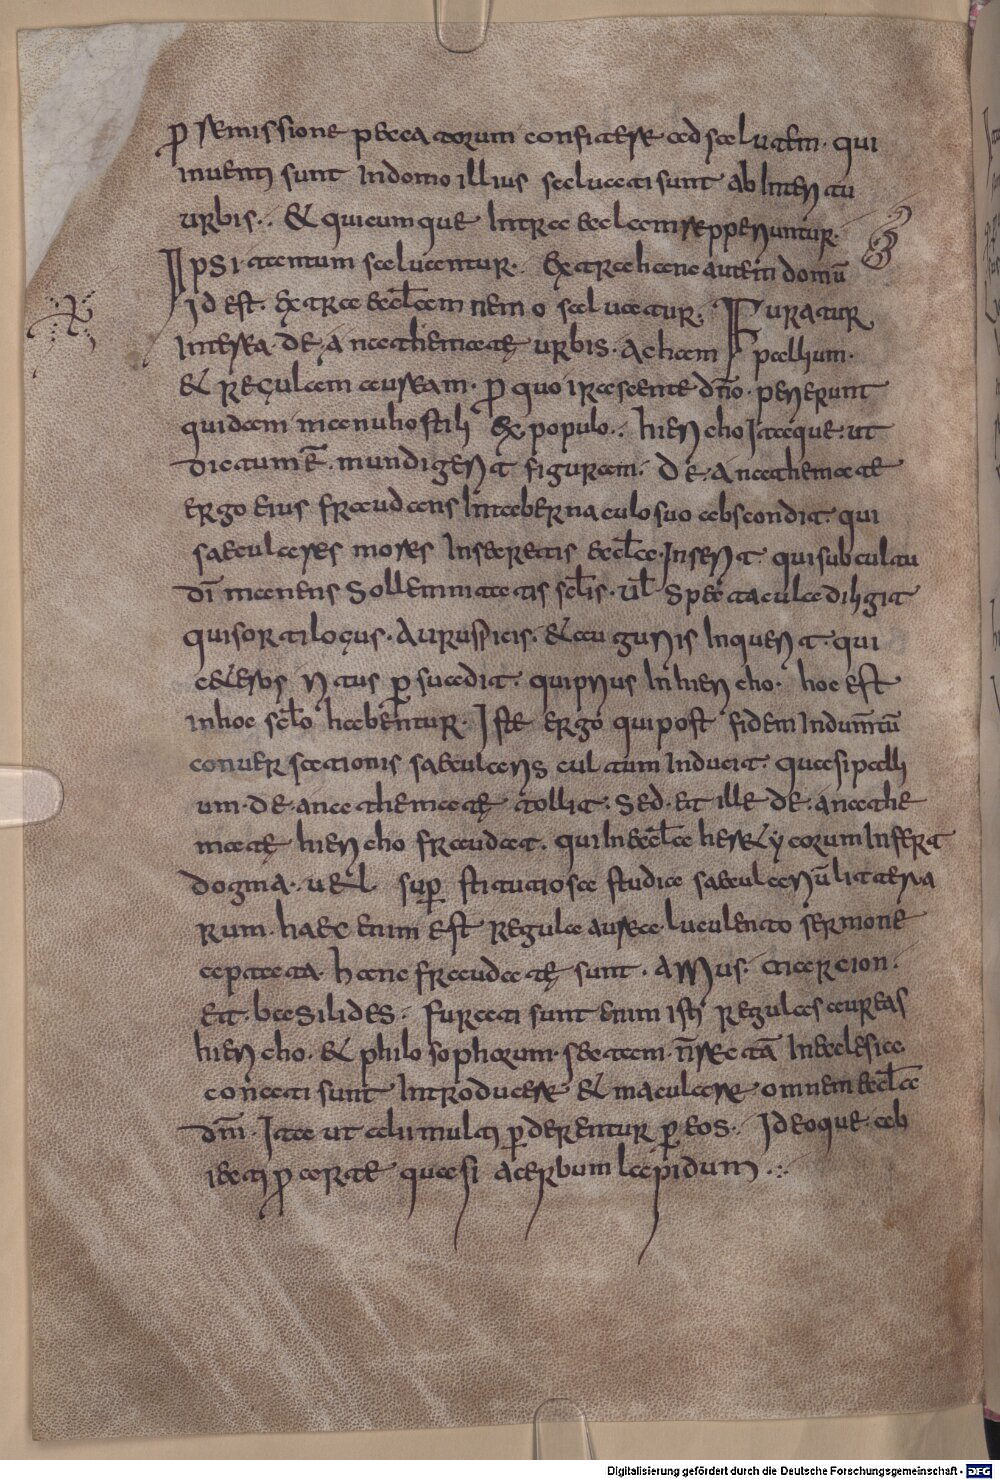 ꝓ remissione peccatorum confitere ad salutem. qui
inuenti sunt Indomo illius saluati sunt ab Interitu
urbis.. & quicumque Intra ecclam repperiuntur.
Ipsi tantum saluantur. Extra hanc autem domū
Id est. Extra eccl̄am nemo saluatur. Furatur
Interea. De. anathemate urbis. acham pallium.
& regulam auream. ꝓ quo irascente dn̄o. perierunt
quidam manu hostili ex populo.. hiericho Itaque. ut
dictum ē. mundi gerit figuram. De. anathemate
ergo eius fraudans Intabernaculo suo abscondit. qui
saeculares mores Insecretis eccl̄ae. Inserit. qui sub cultu
dī manens sollemnitatis sc̄lis. ul̄ spectacula diligit
qui sortilogus. Auruspicis. & auguriis Inquerit. qui
ceteros ritus ꝑ suadit. qui prius In hiericho. hoc est
in hoc sc̄lo habentur. Iste ergo qui post fidem Indumtū
conuersationis saecularis cultum Inducit. quasi palli
um. de. anathemate tollit. Sed. et ille de. anathe
mate hiericho fraudat. qui In eccl̄a hereticorum Inserit
dogma.. uel suꝑstitutiosa studia saecularīū litterra
rum. haec enim est regula aurea. luculento sermone
aptata. hanc fraudate sunt. Arrius. Marcion.
et. basilides. furati sunt enim isti regulas aureas
hiericho. & philosophorum. sectam. n̄ rectā In ecclesia
conati sunt Introducere & maculare omnem eccl̄a
dn̄i. Ita ut alii multi ꝑderentur ꝑ eos.. Ideoque. ab
iecti ꝓ arte quasi acerbum lapidum..